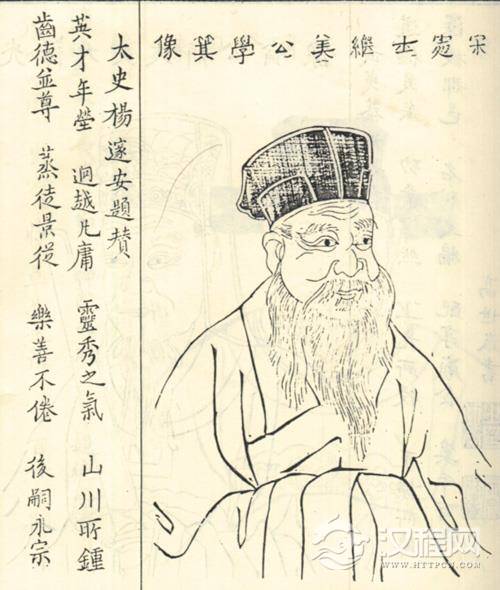 宋處士繼美公學箕像
太史楊邃安題贊
英才年瑩 迥越凡庸 靈秀之氣 山川所鍾
齒德並尊 蒸徒景從 樂善不倦 後嗣永宗
汉程网
WWW.HTTPCN.COM